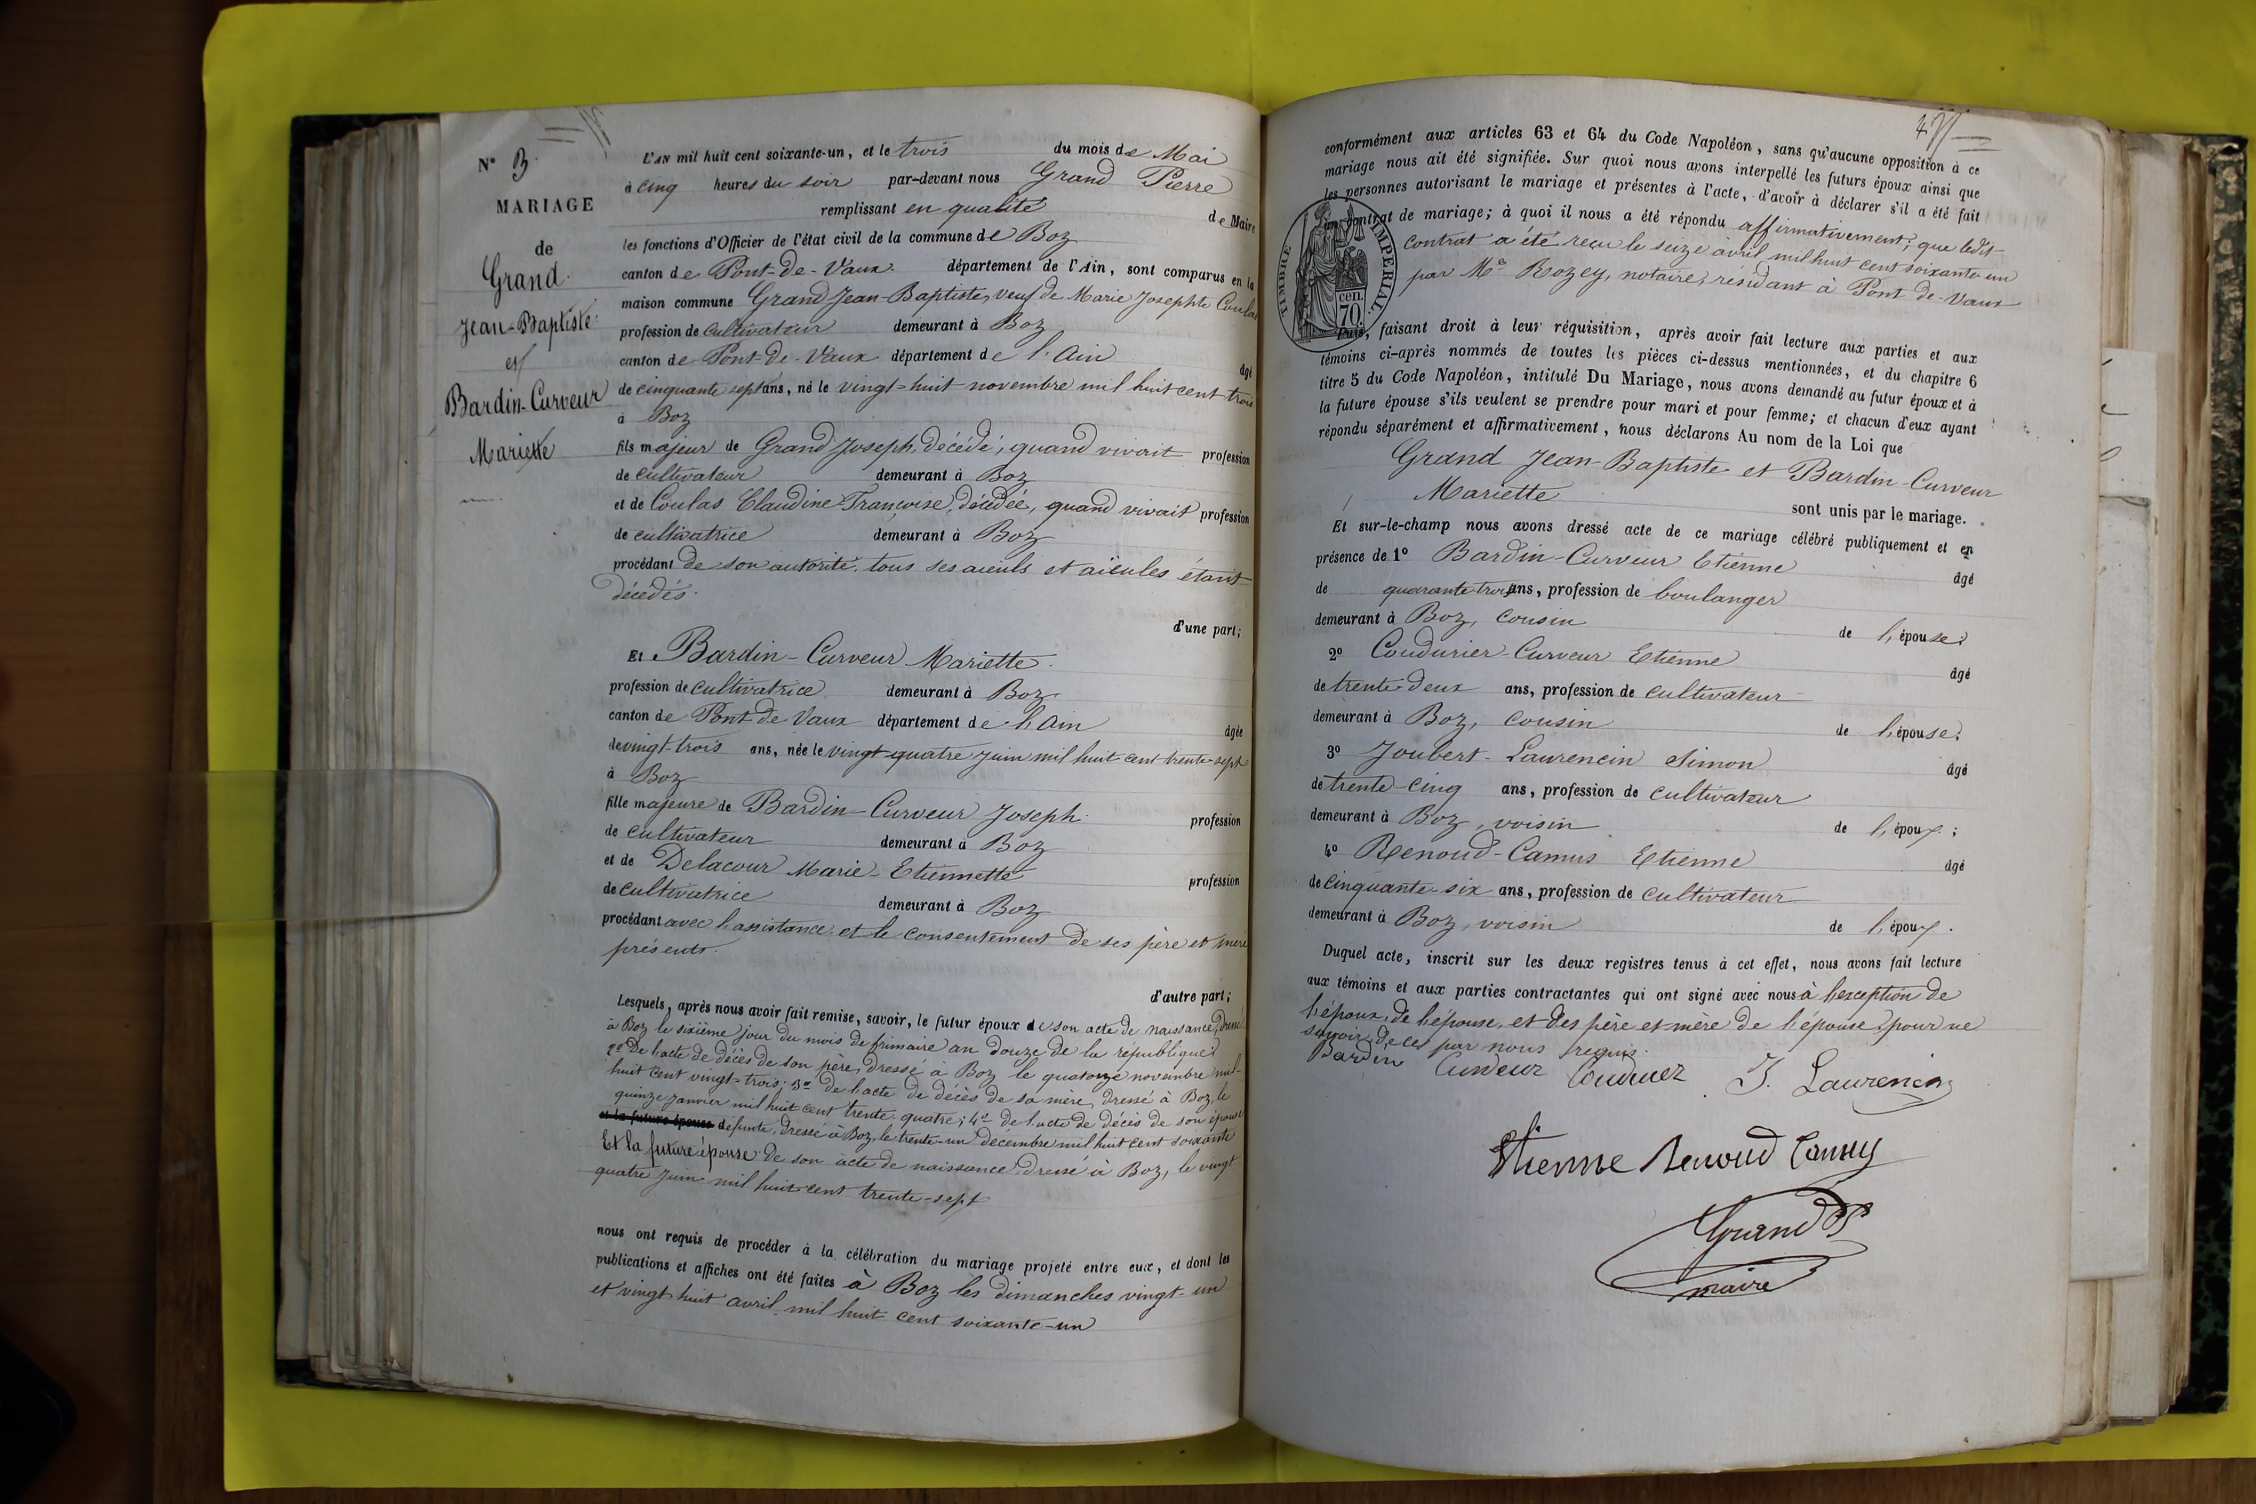 N° 3.
MARIAGE
de
Grand
Jean-Baptiste
et
Bardin-Curveur
Mariette
L'AN mil huit cent soixante-un, et le trois du mois de Mai
à cinq heures du soir par-devant nous Grand Pierre
remplissant en qualité de Maire
les fonctions d'Officier de l'état civil de la commune de Boz
canton de Pont-de-Vaux département de l'Ain, sont comparus en la
maison commune Grand Jean-Baptiste, veuf de Marie Josephte Coulas
profession de cultivateur demeurant à Boz
canton de Pont-de-Vaux département de l'Ain âgé
de cinquante sept ans, né le vingt-huit novembre mil huit cent trois
à Boz
fils majeur de Grand Joseph, décédé, quand vivait profession
de cultivateur demeurant à Boz
et de Coulas Claudine Françoise, décédée, quand vivait profession
de cultivatrice demeurant à Boz
procédant de son autorité, tous ses aïeuls et aïeules étant
décédés.
d'une part;
Et Bardin-Curveur Mariette.
profession de cultivatrice demeurant à Boz
canton de Pont de Vaux département de l'Ain âgée
de vingt-trois ans, née le vingt-quatre juin mil huit cent trente-sept
à Boz
fille majeure de Bardin-Curveur Joseph profession
de cultivateur demeurant à Boz
et de Delacour Marie-Etiennette profession
de cultivatrice demeurant à Boz
procédant avec l'assistance et le consentement de ses père et mère
présents.
d'autre part;
Lesquels, après nous avoir fait remise, savoir, le futur époux de son acte de naissance, dressé
à Boz le sixième jour du mois de frimaire an douze de la république;
2° de l'acte de décès de son père, dressé à Boz le quatorze novembre mil-
huit cent vingt-trois; 3° de l'acte de décès de sa mère, dressé à Boz, le
quinze janvier mil huit cent trente quatre; 4° de l'acte de décès de son épouse
et la future épouse défunte, dressé à Boz, le trente-un décembre mil huit cent soixante
Et la future épouse de son acte de naissance dressé à Boz, le vingt
quatre juin mil huit cent trente-sept
nous ont requis de procéder à la célébration du mariage projeté entre eux, et dont les
publications et affiches ont été faites à Boz les dimanches vingt-un
et vingt huit avril mil huit cent soixante-un
conformément aux articles 63 et 64 du Code Napoléon, sans qu'aucune opposition à ce
mariage nous ait été signifiée. Sur quoi nous avons interpellé les futurs époux ainsi que
les personnes autorisant le mariage et présentes à l'acte, d'avoir à déclarer s'il a été fait
contrat de mariage; à quoi il nous a été répondu affirmativement; que ledit
contrat a été reçu le seize avril mil huit cent soixante-un
par Me Rozey, notaire, résidant à Pont-de-Vaux
TIMBRE IMPERIAL
70 cen.
Puis, faisant droit à leur réquisition, après avoir fait lecture aux parties et aux
témoins ci-après nommés de toutes les pièces ci-dessus mentionnées, et du chapitre 6
titre 5 du Code Napoléon, intitulé Du Mariage, nous avons demandé au futur époux et à
la future épouse s'ils veulent se prendre pour mari et pour femme; et chacun d'eux ayant
répondu séparément et affirmativement, nous déclarons Au nom de la Loi que
Grand Jean-Baptiste et Bardin-Curveur
Mariette
sont unis par le mariage.
Et sur-le-champ nous avons dressé acte de ce mariage célébré publiquement et en
présence de 1° Bardin-Curveur Etienne âgé
de quarante trois ans, profession de boulanger
demeurant à Boz, cousin de l'épouse;
2° Coudurier-Curveur Etienne âgé
de trente-deux ans, profession de cultivateur
demeurant à Boz, cousin de l'épouse;
3° Joubert-Laurencin Simon âgé
de trente-cinq ans, profession de cultivateur
demeurant à Boz, voisin de l'époux;
4° Renoud-Camus Etienne âgé
de cinquante-six ans, profession de cultivateur
demeurant à Boz, voisin de l'époux.
Duquel acte, inscrit sur les deux registres tenus à cet effet, nous avons fait lecture
aux témoins et aux parties contractantes qui ont signé avec nous à l'exception de
l'époux, de l'épouse, et des père et mère de l'épouse, pour ne
savoir, de ce par nous requis.
Bardin Curveur J. Laurencin
Etienne Renoud Camus
Grand P
maire